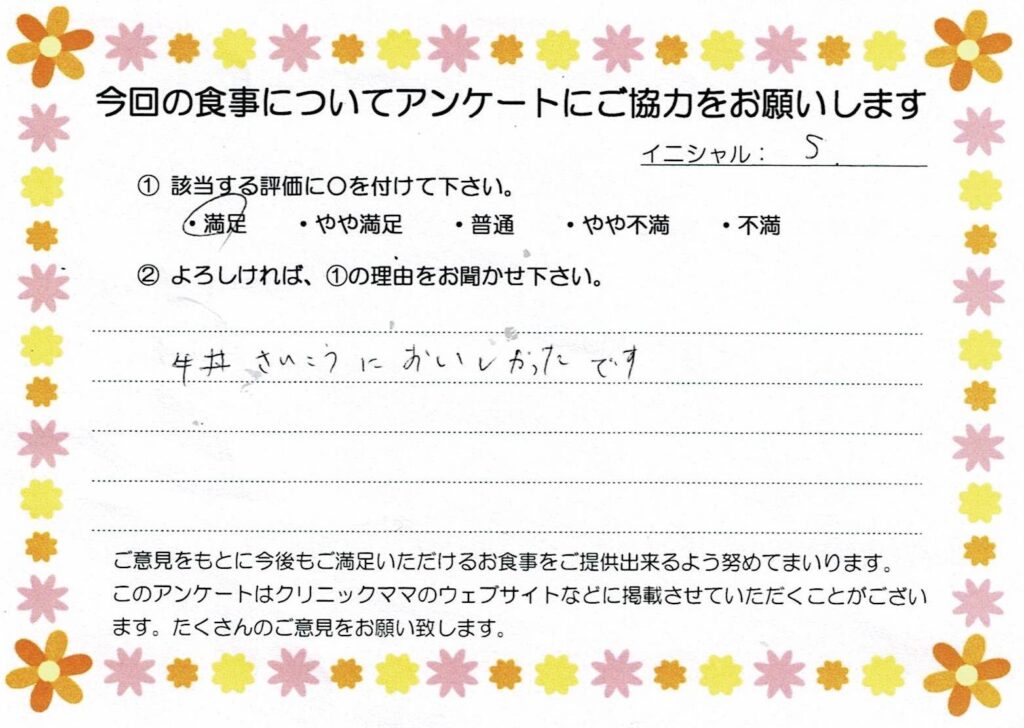 今回の食事についてアンケートにご協力をお願いします
イニシャル： S.
① 該当する評価に〇を付けて下さい。
・満足 ・やや満足 ・普通 ・やや不満 ・不満
② よろしければ、①の理由をお聞かせ下さい。
牛丼 さいこうに おいしかったです
ご意見をもとに今後もご満足いただけるお食事をご提供出来るよう努めてまいります。
このアンケートはクリニックママのウェブサイトなどに掲載させていただくことがござい
ます。たくさんのご意見をお願い致します。